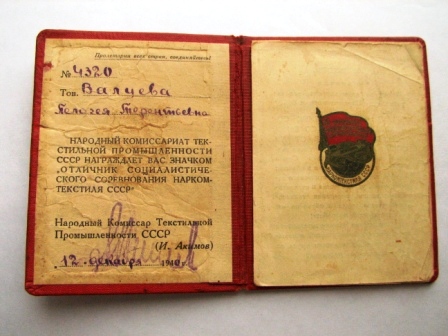 Пролетарии всех стран, соединяйтесь!
№ 4320
Тов. Валуева
Пелагея Терентьевна
НАРОДНЫЙ КОМИССАРИАТ ТЕК-
СТИЛЬНОЙ ПРОМЫШЛЕННОСТИ
СССР НАГРАЖДАЕТ ВАС ЗНАЧКОМ
„ОТЛИЧНИК СОЦИАЛИСТИЧЕ-
СКОГО СОРЕВНОВАНИЯ НАРКОМ-
ТЕКСТИЛЯ СССР"
Народный Комиссар Текстильной
Промышленности СССР
(И. Акимов)
12 декабря 194